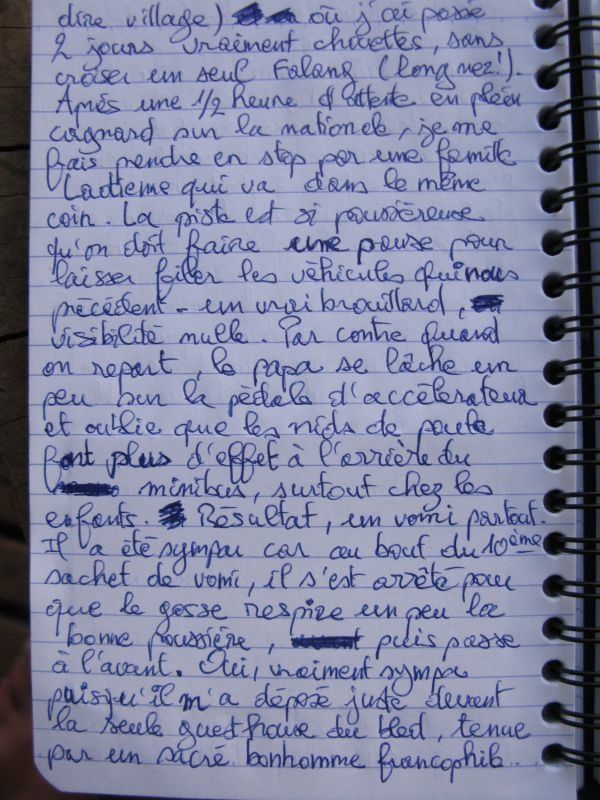 dire village) où j'ai passé
2 jours vraiment chouettes, sans
croiser un seul Falang (long nez!).
Après une 1/2 heure d'attente en plein
cagnard sur la nationale, je me
fais prendre en stop par une famille
Laotienne qui va dans le même
coin. La piste est si poussiéreuse
qu'on doit faire une pause pour
laisser filer les véhicules qui nous
précèdent - un vrai brouillard,
visibilité nulle. Par contre quand
on repart, le papa se lâche un
peu sur la pédale d'accélérateur
et oublie que les nids de poule
font plus d'effet à l'arrière du
minibus, surtout chez les
enfants. Résultat, un vomi partout.
Il a été sympa car au bout du 10ème
sachet de vomi, il s'est arrêté pour
que le gosse respire un peu la
bonne poussière, puis passe
à l'avant. Oui, vraiment sympa
puisqu'il m'a déposé juste devant
la seule guesthouse du bled, tenue
par un sacré bonhomme francophile.